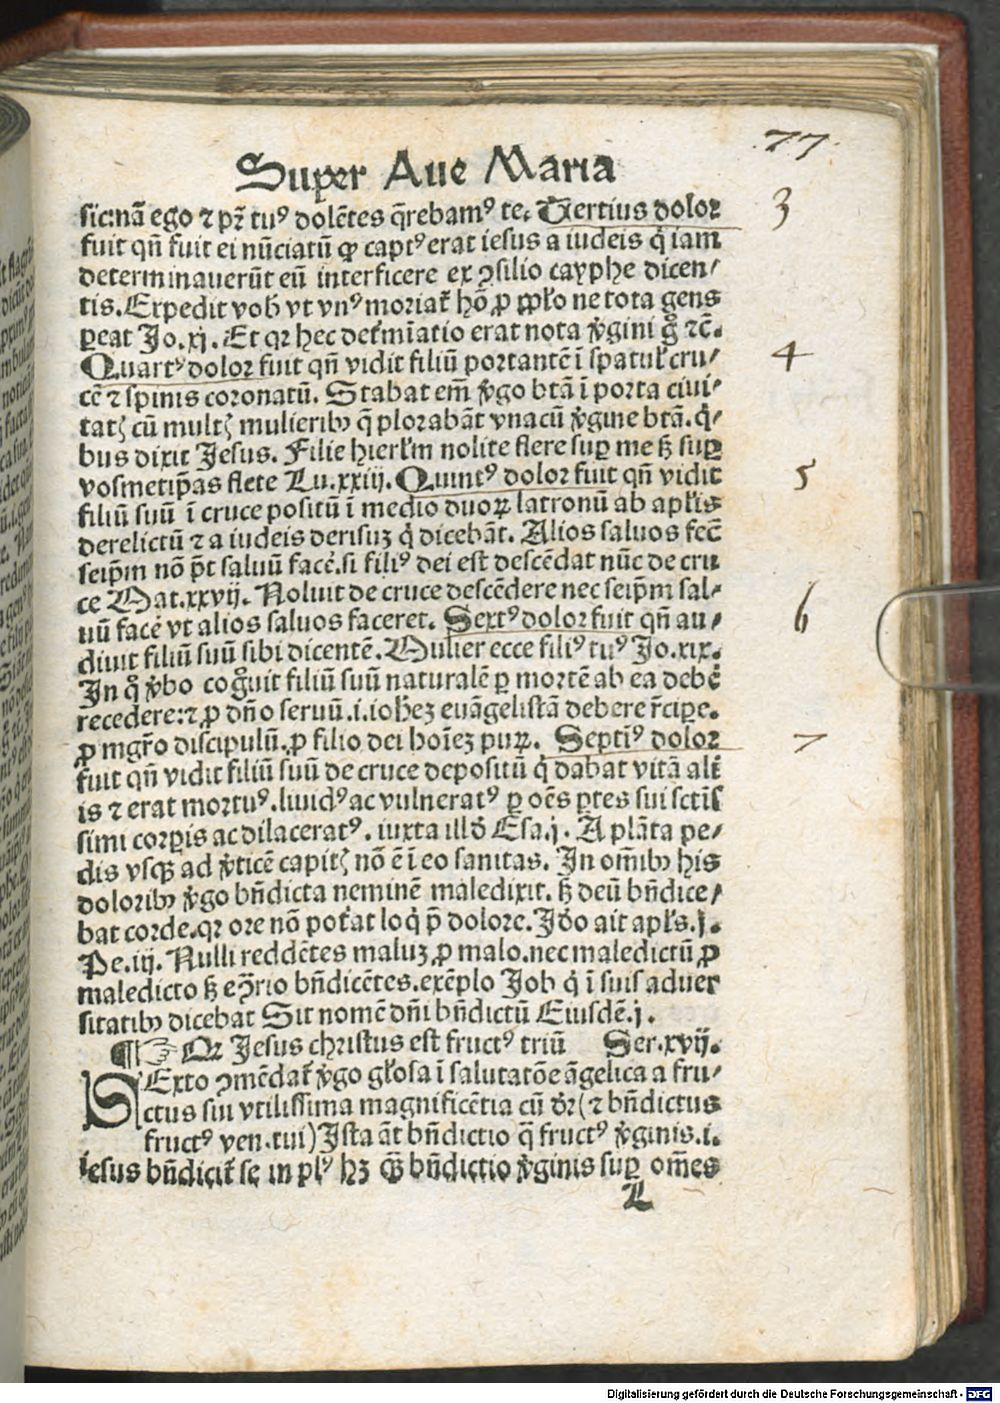 77.
Super Aue Maria
sic:nā ego ⁊ pr̄ tuꝰ dolētes q̄rebamꝰ te. Tertius dolor
3
fuit qn̄ fuit ei nūciatū ꝙ captꝰ erat iesus a iudeis q̇ iam
determinauerūt eū interficere ex ↄsilio cayphe dicen/
tis. Expedit vob̄ vt vnꝰ moriat̄ hō ꝓ ppl̄o ne tota gens
ꝑeat Jo.xj. Et qꝛ hec det̄mīatio erat nota v̄gini g̊ ⁊c̄.
Quartꝰ dolor fuit qn̄ vidit filiū portantē ī spatul̄ cru/
4
cē ⁊ spinis coronatū. Stabat em̄ v̄go btā ī porta ciui/
tatꝭ cū multꝭ mulieribꝰ q̄ plorabāt vnacū v̄gine btā. q̇/
bus dixit Jesus. Filie hierl̄m nolite flere suꝑ me sꝫ suꝑ
vosmetip̄as flete Lu.xxiij. Quintꝰ dolor fuit qn̄ vidit
5
filiū suū ī cruce positū ī medio duoꝝ latronū ab apl̄is
derelictū ⁊ a iudeis derisuꝫ q̇ dicebāt. Alios saluos fec̄
seip̄m nō p̄t saluū facē. si filiꝰ dei est descēdat nūc de cru
ce Mat.xxvij. Noluit de cruce descēdere nec seip̄m sal/
uū facē vt alios saluos faceret. Sextꝰ dolor fuit qn̄ au/
6
diuit filiū suū sibi dicentē. Mulier ecce filiꝰ tuꝰ Jo.xix.
In q̊ v̄bo cog̊uit filiū suū naturalē ꝑ mortē ab ea debē
recedere: ⁊ ꝓ dn̄o seruū.i.ioħeꝫ euāgelistā debere r̄ciꝑe.
ꝓ mgr̄o discipulū. ꝓ filio dei hoīeꝫ puꝝ. Septiꝰ dolor
7
fuit qn̄ vidit filiū suū de cruce depositū q̇ dabat vitā alī
is ⁊ erat mortuꝰ. liuidꝰ ac vulneratꝰ ꝑ oēs ꝑtes sui sctīs
simi corꝑis ac dilaceratꝰ. iuxta illđ Esa.j. A plāta pe/
dis vsqꝫ ad v̄ticē capitꝭ nō ē ī eo sanitas. In om̄ibꝰ his
doloribꝰ v̄go bn̄dicta neminē maledixit. sꝫ deū bn̄dice/
bat corde. qꝛ ore nō pot̄at loq̇ p̄ dolore. Jđo ait apl̄s.j.
Pe.iij. Nulli reddētes maluꝫ ꝓ malo. nec maledictū ꝓ
maledicto sꝫ eↄ̄rio bn̄dicētes. exēplo Job q̇ ī suis aduer
sitatibꝰ dicebat Sit nomē dn̄i bn̄dictū Eiusdē.j.
¶☞ Qꝛ Jesus christus est fructꝰ triū Ser.xvij.
SExto ↄmēdat̄ v̄go gl̄osa ī salutatōe āgelica a fru/
ctus sui vtilissima magnificētia cū dr̄ (⁊ bn̄dictus
fructꝰ ven.tui) Ista āt bn̄dictio q̄ fructꝰ v̄ginis.i.
iesus bn̄dicit̄ se in plꝰ hꝫ q̄ꝫ bn̄dictio v̄ginis suꝑ om̄es
L
Digitalisierung gefördert durch die Deutsche Forschungsgemeinschaft - DFG